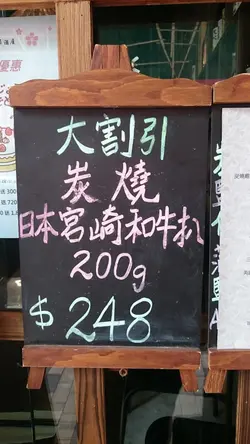 大割引
炭燒
日本宮崎和牛扒
200g
$248
優惠